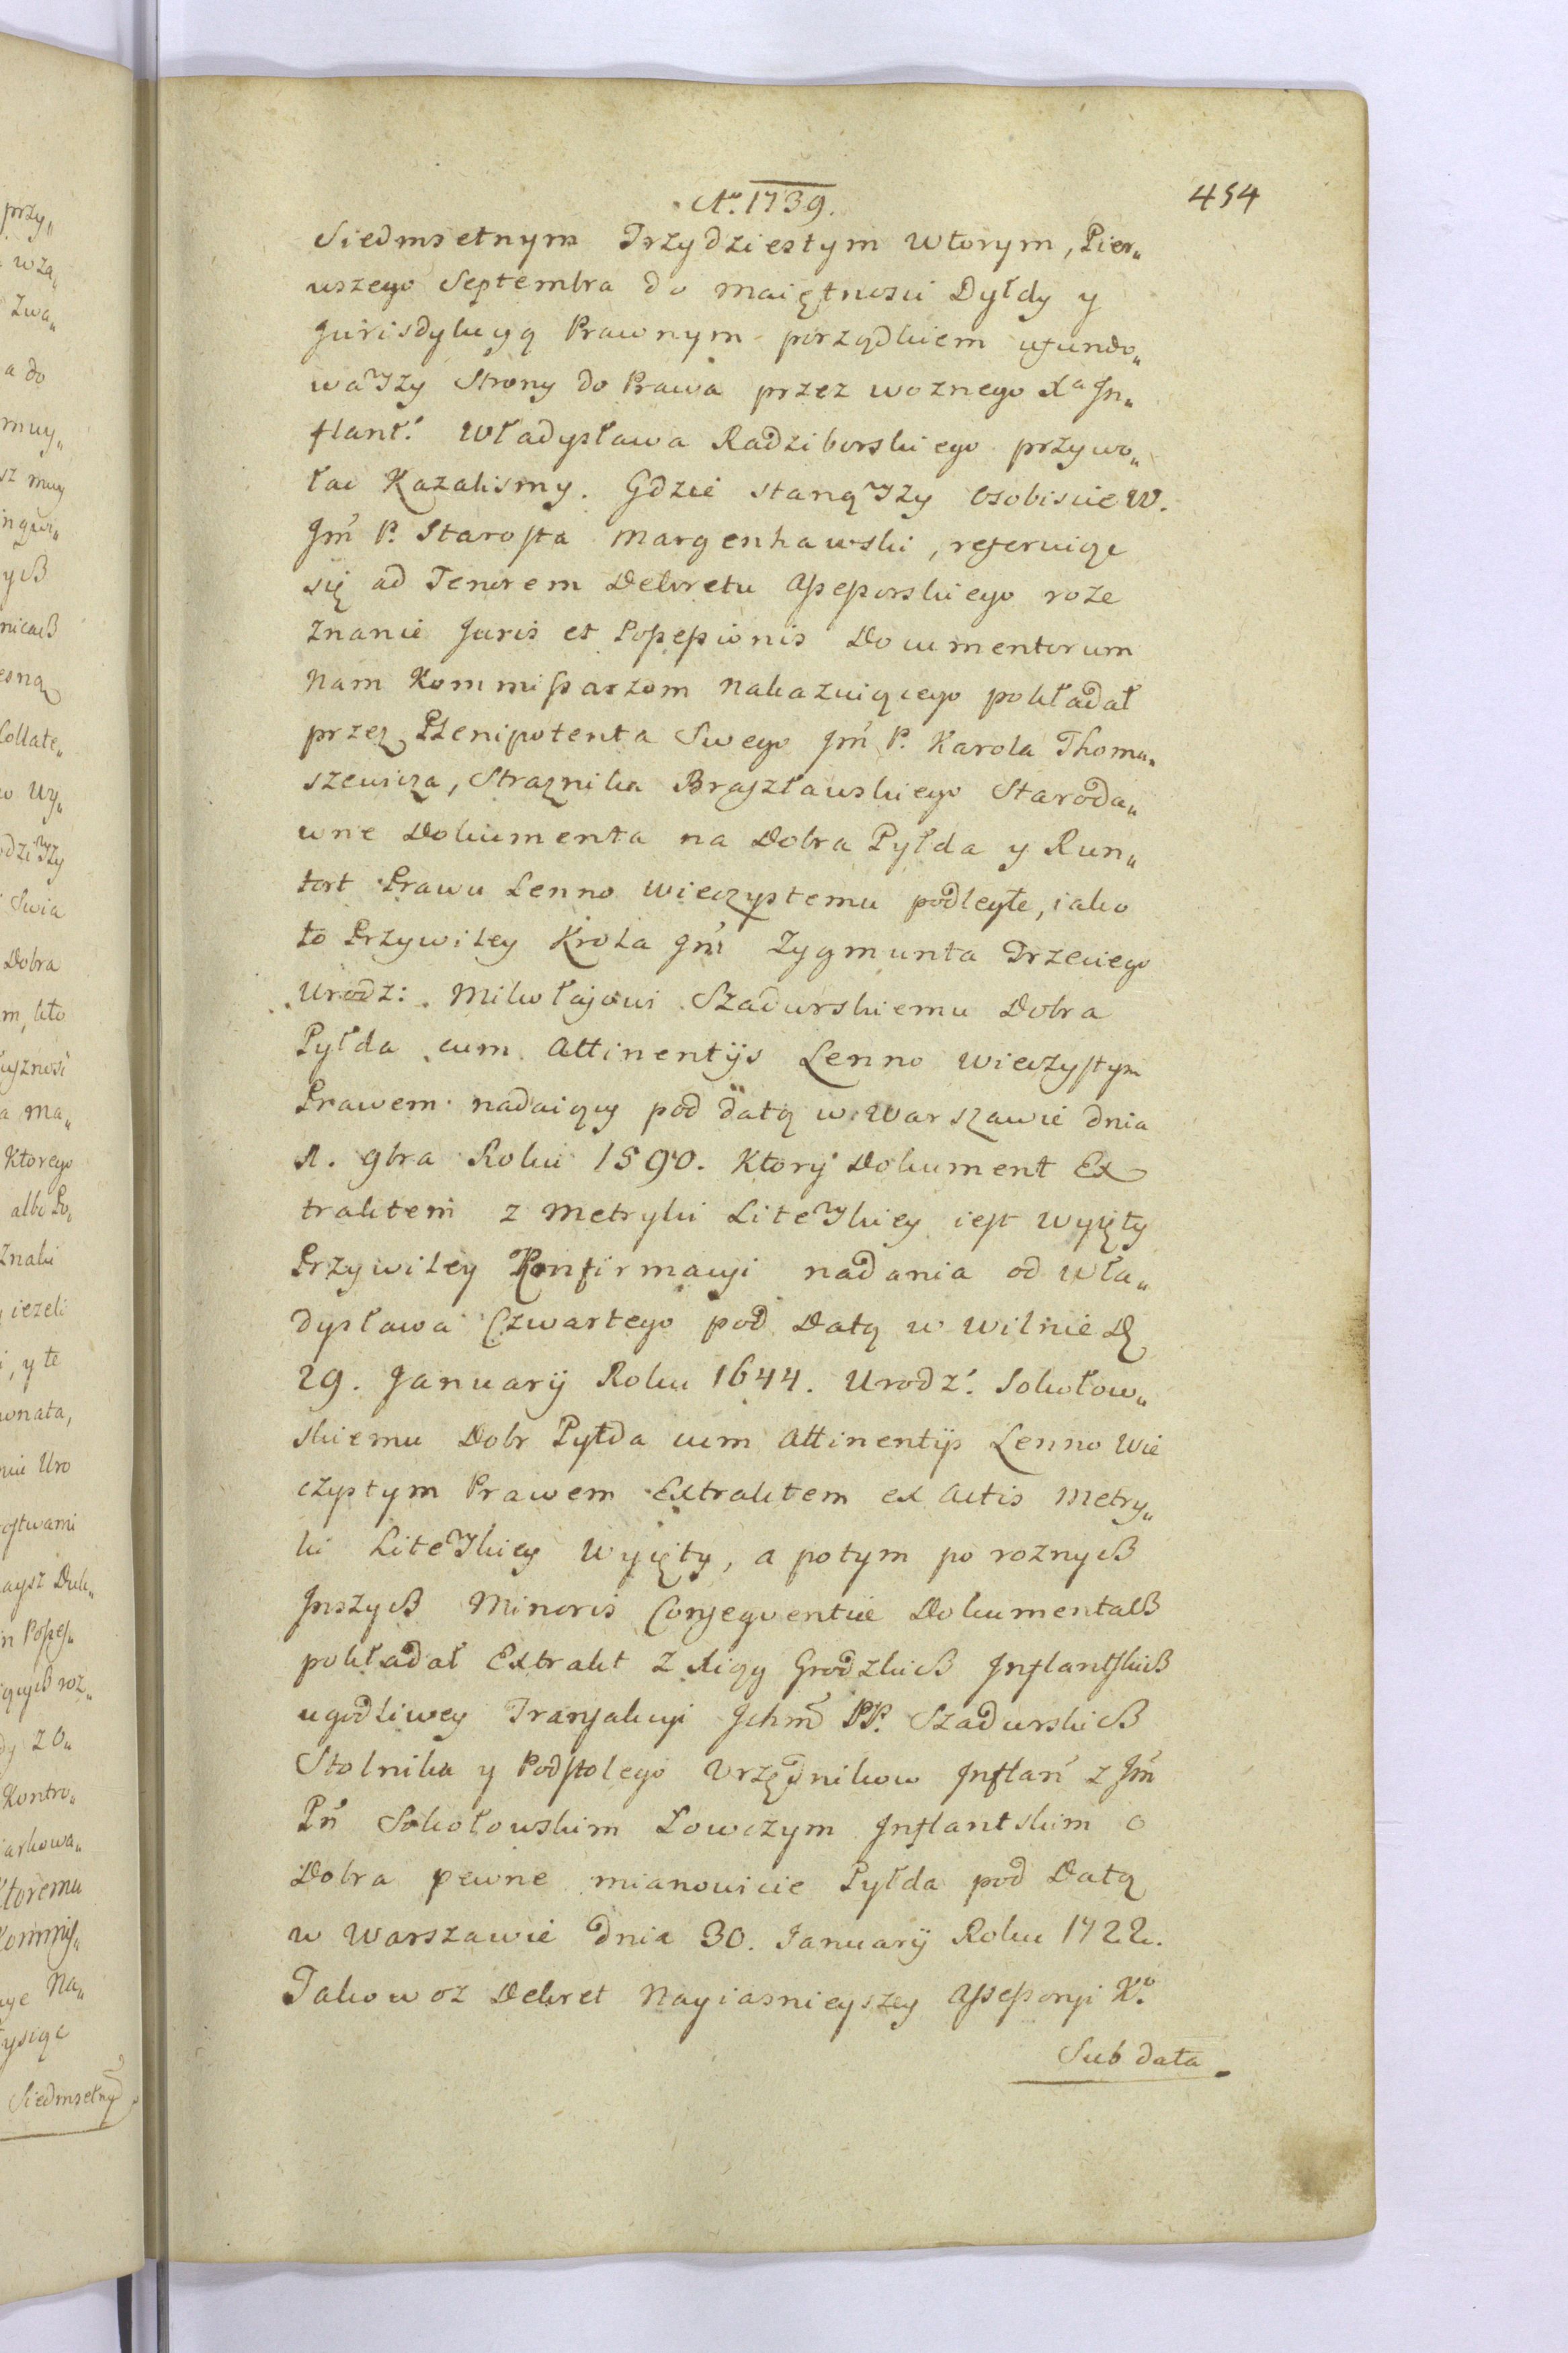 Ao. 1739.
454
Siedmsetnym Trzydziestym wtorym, Pier„
wszego Septembra do maiętnosci Dyłdy y
Jurisdykcyą Prawnym porządkiem ufundo„
wawszy Strony do Prawa przez woznego Xa In„
flant: Władysława Radziborskiego przywo„
łac Kazalismy. Gdzie stanąwszy osobiscie W.
Jm̃ P. Starosta Margenhawski, referuiąc
się ad Tenorem Dekretu Assessorskiego roze
znanie Juris et Possessionis Documentorum
nam Kommissarzom nakazuiącego pokładał
przez Plenipotenta Swego Jm̃ P. Karola Thoma„
szewicza, Straznika Brasławskiego Staroda„
wne Dokumenta na Dobra Pyłda y Run„
tort Prawu Lenno wieczystemu podległe, iako
to Przywiley Krola Jm̃ Zygmunta Trzeciego
Urodz: Mikołajowi Szadurskiemu Dobra
Pyłda cum Attinentijs Lenno wieczystym
Prawem nadaiący pod datą w Warszawie dnia
1. 9bra Roku 1590. Ktory Dokument Ex
traktem z Metryki Litewskiey iest wyięty
Przywiley Konfirmacyi nadania od Wła„
dysława Czwartego pod Datą w Wilnie D.
29. Januarij Roku 1644. Urodz: Sokołow„
skiemu Dobr Pyłda cum Attinentijs Lenno Wie
czystym Prawem Extraktem ex Actis Metry„
ki Litewskiey Wyięty, a potym po roznych
Inszych Minoris Consequentiæ Dokumentach
pokładał Extrakt z Xiąg Grodzkich Inflantskich
ugodliwey Transakcyi Ichm̃ PP. Szadurskich
Stolnika y Podstolego Urzędnikow Inflan̄ z Jm̃
Pn̄ Sokołowskim Łowczym Inflantskim o
Dobra pewne mianowicie Pyłda pod Datą
w Warszawie dnia 30. Januarij Roku 1722.
Takowoz Dekret Nayiasnieyszey Assessoryi Ko.
Sub data